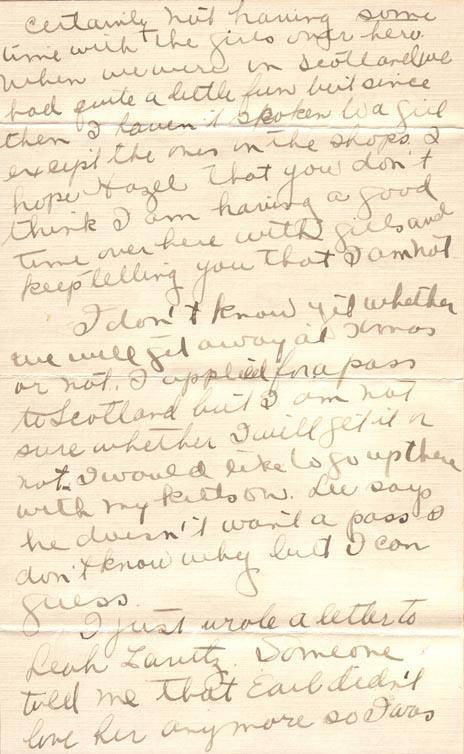 certainly not having some
time with the girls over here.
When we were in Scotland we
had quite a little fun but since
then I haven't spoken to a girl
except the ones in the shops. I
hope Hazel that you don't
think I am having a good
time over here with girls and
keep telling you that I am not
I don't know yet whether
we will get away at Xmas
or not. I applied for a pass
to Scotland but I am not
sure whether I will get it or
not. I would like to go up there
with my kilts on. Lee says
he doesn't want a pass I
don't know why but I can
guess.
I just wrote a letter to
Leah. Someone
told me that Earl didn't
love her any more so I was